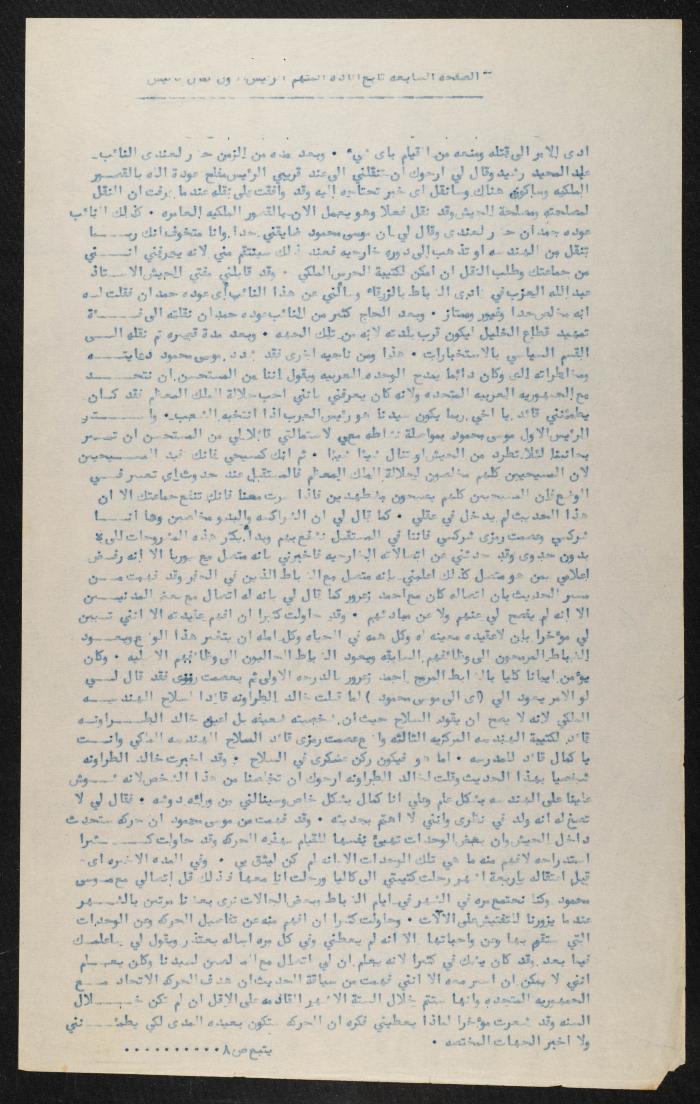 الصفحه السابعه تابع افاده المتهم الرئيس
ادى الامر الى قتله ومنعه من القيام باى شيء ٠ وبعد مده من الزمن حضر لعندى النائب
عبد المجيد رشيد وقال لي ارجوك ان تنقلني الى عند قريبي الرئيس مفلح عوده الله بالقصور
الملكيه وساكون هناك وسانقل اى خبر تحتاجه اليه وقد وافقت على نقله عندما عرفت ان النقل
لمصلحته ومصلحة الجيش وقد نقل فعلا وهو يعمل الان بالقصور الملكيه العامره ٠ كذلك النائب
عوده حمدان حضر لعندى وقال لي ان موسى محمود ضايقني جدا وانا متخوف انك ربما
تنقل من الهندسه او تذهب الى دوره خارجيه فعند ذلك سينتقم مني لانه يعرفني انني
من جماعتك وطلب النقل ان امكن لكتيبة الحرس الملكي ٠ وقد قابلني مفتي الجيش الاستاذ
عبد الله العزب في نادى الضباط بالزرقاء وسالني عن هذا النائب أي عوده حمدان فقلت له
انه مخلص جدا وغيور وممتاز ٠ وبعد الحاح كثير من النائب عوده حمدان نقلته الى
قطاع الخليل ليكون قرب بلدته لانه من تلك الجهه ٠ وبعد مدة قصيره تم نقله الى
القسم السياسي بالاستخبارات ٠ هذا ومن ناحيه اخرى فقد موسى محمود دعايته
ومخاطراته الى وكان دائما يمدح الوحده العربيه ويقول اننا من المستحسن ان نتحد
مع الجمهوريه العربيه المتحده ولانه كان يعرفني بانني احب جلالة الملك المعظم فقد كان
يطمئنني قائلا يا اخي ربما يكون سيدنا هو رئيس العرب اذا انتخبه الشعب ٠ واستمر
الرئيس الاول موسى محمود بمواصلة نشاطه معي لاستمالتي قائلا لي من المستحسن ان تسير
بجانبنا لئلا تطرد من الجيش او تنال شيئا ٠ ثم انك كمسيحي فانك ضد المسيحيين
لان المسيحيين كلهم مخلصون لجلالة الملك المعظم فالمستقبل عند حدوث اى تغيير في
الوضع فان المسيحيين كلهم يصبحون مضطهدين فاذا سرت معنا فانك تنفع جماعتك الا ان
هذا الحديث لم يدخل في عقلي ٠ كما قال لي ان الشراكسه والبدو مخلصين وها انا
شركسي وعصمت رمزى شركسي فاننا في المستقبل نشفع بهم وبدأ يكثر هذه الشروحات لي
بدون جدوى وقد حدثني عن اتصالاته الخارجيه فاخبرني بانه متصل مع سوريا الا انه رفض
اعلامي بمن هو متصل كذلك اعلمني بانه متصل مع الضباط الذين في الجفر وقد فهمت من
سير الحديث بان اتصاله كان مع احمد زعرور كما قال لي بانه له اتصال مع بعض المدنيين
الا انه لم يفصح لي عنهم ولا عن مبادئهم ٠ وقد حاولت كثيرا ان افهم عقيدته الا انني تبين
لي مؤخرا بان لا عقيده معينه له وكل همه في الحياه وكل امله ان يتغير هذا الوضع ويعود
الضباط المسرحون الى وظائفهم السابقه ويعود الضباط الحاليون الى وظائفهم الاصليه ٠ وكان
يؤمن ايمانا كليا بالضابط المسرح احمد زعرور بالدرجه الاولى ثم بعصمت رمزى فقد قال لي
لو الامر يعود الي ( اى الى موسى محمود ) لما قبلت خالد الطراونه قائدا لسلاح الهندسه
الملكي لانه لا يصح ان يقود السلاح حيث ان شخصيته ضعيفه بل اعين خالد الطراونه
قائد لكتيبة الهندسه المركزيه الثالثه واضع عصمت رمزى قائد السلاح الهندسه الملكي وانت
يا كمال قائد للمدرسه ٠ اما هو فيكون ركن عسكرى في السلاح ٠ وقد اخبرت خالد الطراونه
شخصيا بهذا الحديث وقلت لخالد الطراونه ارجوك ان تخلصنا من هذا الشخص لانه شوش
علينا على الهندسه بشكل عام وعلي انا كمال بشكل خاص وسينالني من ورائه دوشه ٠ فقال لي لا
تصغ له انه ولد في نظرى وانني لا اهتم بحديثه ٠ وقد فهمت من موسى محمود ان حركه ستحدث
داخل الجيش وان بعض الوحدات تهيئ نفسها للقيام بهذه الحركه وقد حاولت كثيرا
استدراجه لافهم منه ما هي تلك الوحدات الا انه لم يكن ليثق بي ٠ وفي المده الاخيره اى
قبل اعتقاله باربعة اشهر رحلت كتيبتي الى كاليا ورحلت انا معها فلذلك قل اتصالي مع موسى
محمود وكنا نجتمع مره في الشهر في ايام الضباط وبعض الحالات نرى بعضنا مرتين بالشهر
عندما يزورنا للتفتيش على الآلات ٠ وحاولت كثيرا ان افهم منه عن تفاصيل الحركه وعن الوحدات
التي ستقوم بها وعن واجباتها الا انه لم يعطني وفي كل مره اساله يعتذر ويقول لي ساعلمك
فيما بعد وقد كان يشك في كثيرا لانه يعلم ان لي اتصال مع المخلصين لسيدنا وكان يعلم
انني لا يمكن ان اسير معه الا انني فهمت من سياقة الحديث ان هدف الحركه الاتحاد مع
الجمهوريه المتحده وانها ستتم خلال الستة الاشهر القادمه على الاقل ان لم تكن خلال
السنه وقد شعرت مؤخرا لماذا يعطيني فكره ان الحركه ستكون بعيده المدى لكي يطمئنني
ولا اخبر الجهات المختصه ٠
يتبع ص ٨ ٠٠٠٠٠٠٠٠٠٠